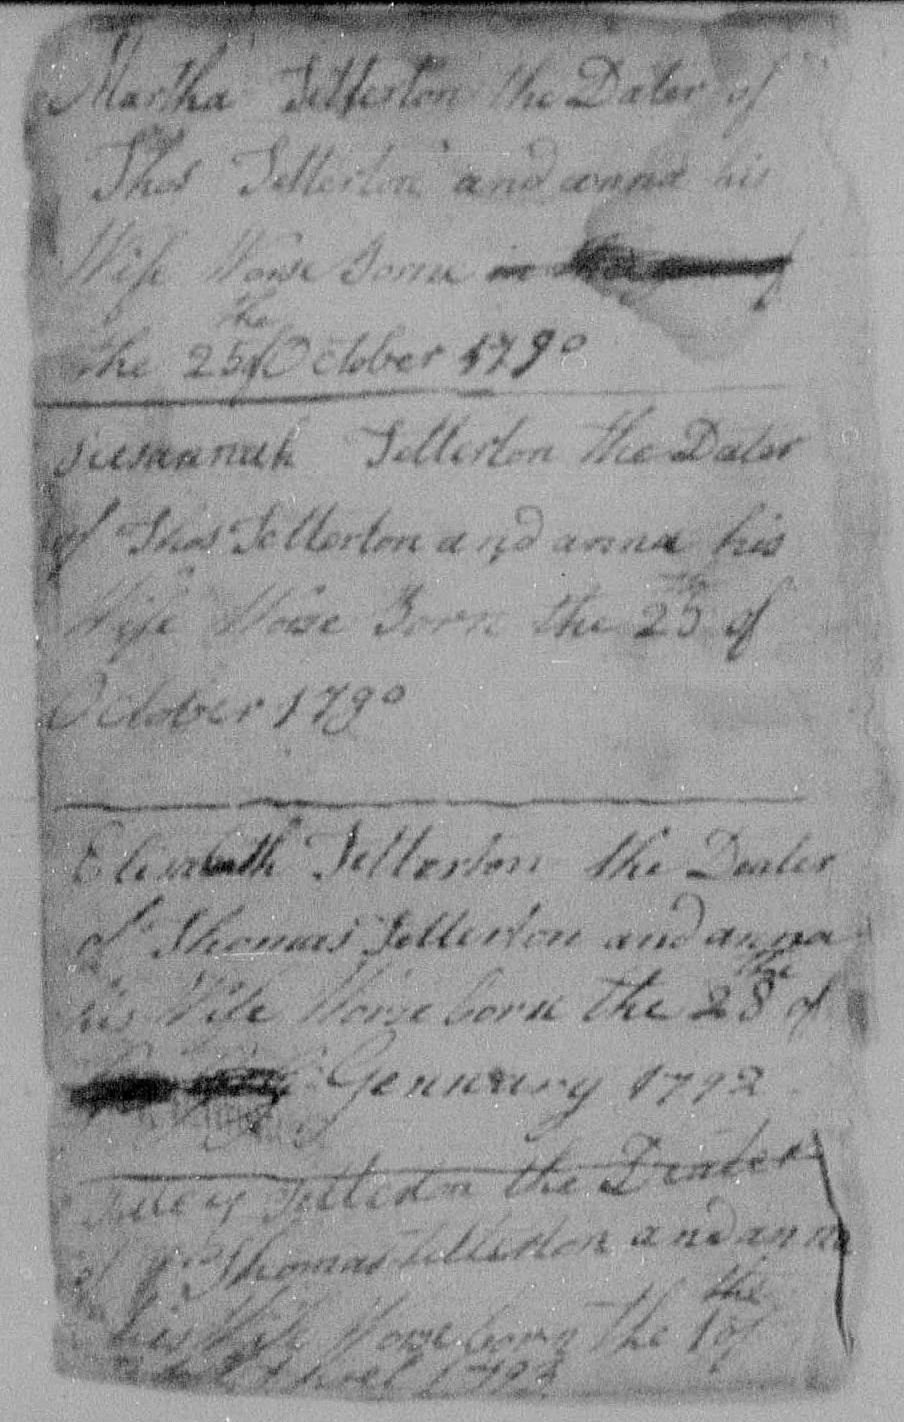 Martha Tetterton the Dater of
Thos Tetterton and anna his
Wife Wose Borne in
the
the 25 of October 1790
Susannah Tetterton the Dater
of Thos Tetterton and anna his
th
Wife Wose Born the 25 of
October 1790
Elisabeth Tetterton the Deater
of Thomas Tetterton and anna
the
his Wife Wose born the 28 of
Gennuary 1792
Tetterton the Deater
of Thomas Tetterton and anna
the
his Wife Wose born the 1 of
1793